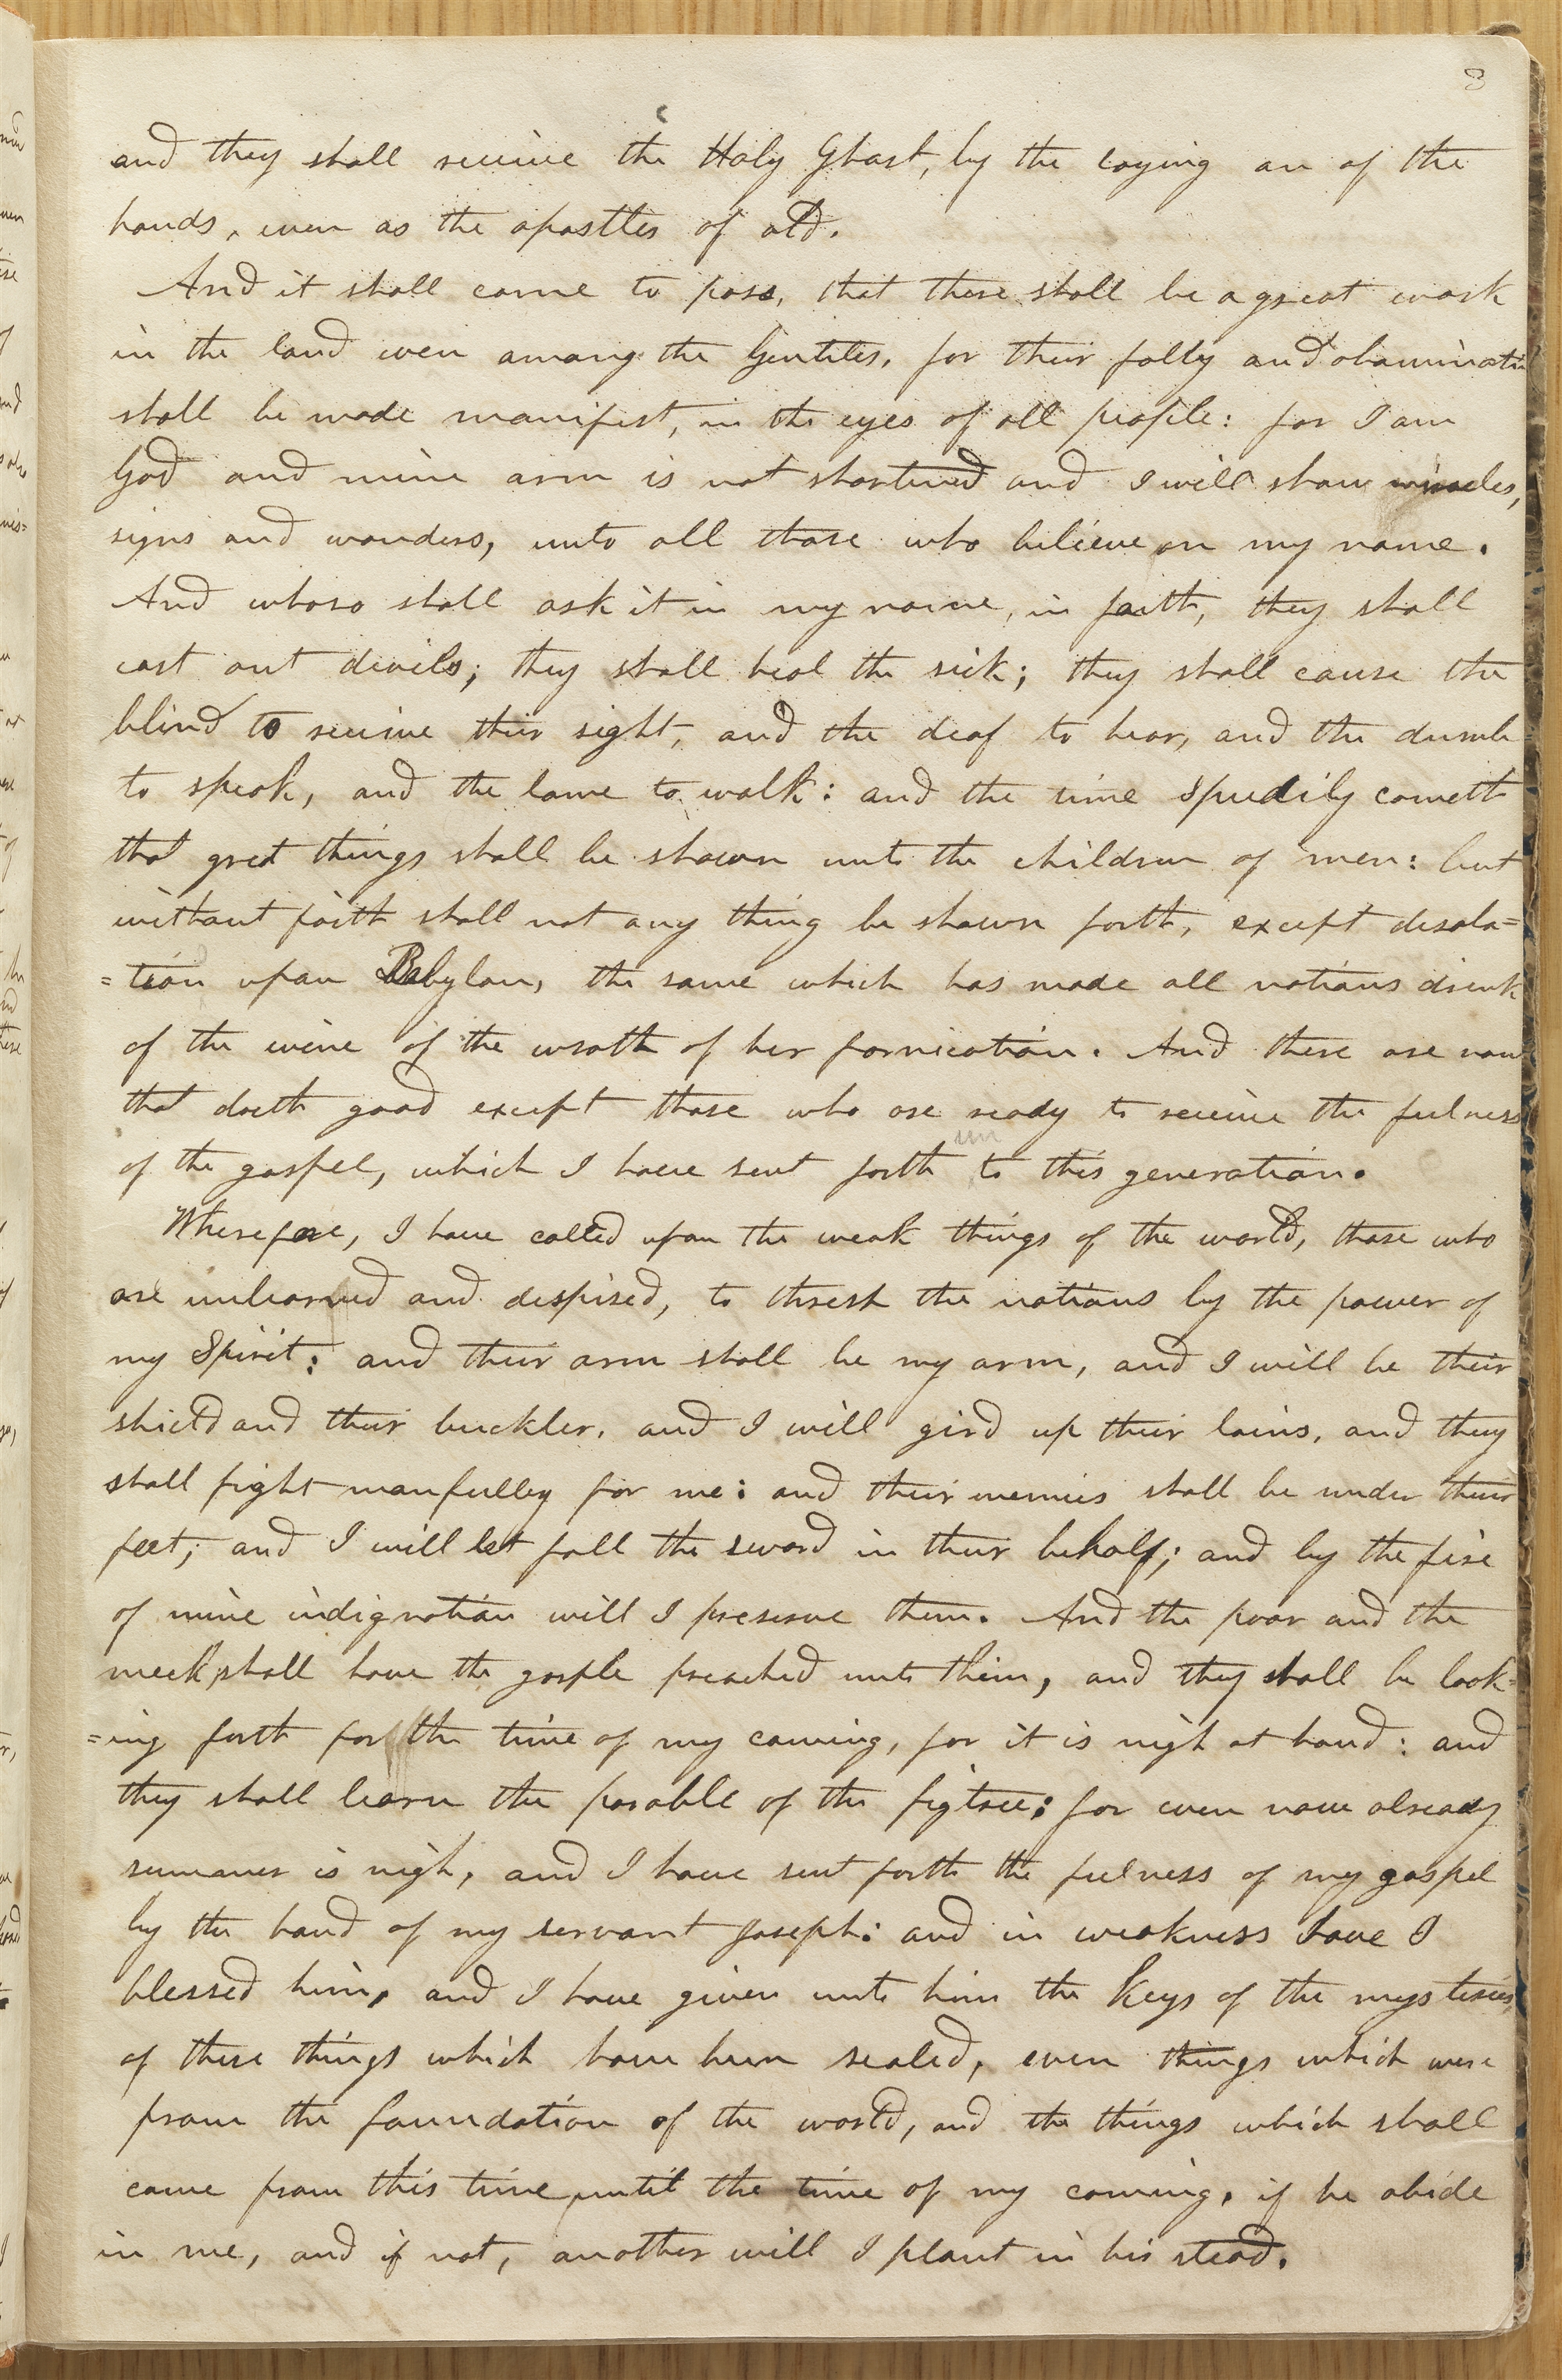 3
and they shall receive the Holy Ghost, by the laying on of the
hands, even as the apostles of old.
And it shall come to pass, that there shall be a great work
in the land even among the Gentiles, for their folly and abominatin
shall be made manifest, in the eyes of all people: for I am
God and mine arm is not shortened and I will show miracles,
signs and wonders, unto all those who believe on my name.
And whoso shall ask it in my name, in faith, they shall
cast out devils; they shall heal the sick; they shall cause the
blind to receive their sight, and the deaf to hear, and the dumb
to speak, and the lame to walk: and the time speedily cometh
that great things shall be shown unto the children of men: but
without faith shall not any thing be shown forth, except desola=
=tion upon Babylon, the same which has made all nations drink
of the wine of the wrath of her fornication. And there are none
that doeth good except those who are ready to receive the fulness
of the gospel, which I have sent forth un to this generation.
Wherefore, I have called upon the weak things of the world, those who
are unlearned and despised, to thresh the nations by the power of
my Spirit: and their arm shall be my arm, and I will be their
shield and their buckler, and I will gird up their loins, and they
shall fight manfulley for me: and their enemies shall be under their
feet; and I will let fall the sword in their behalf; and by the fire
of mine indignation will I preserve them. And the poor and the
meek, shall have the gosple preached unto them, and they shall be look=
=ing forth for the time of my coming, for it is nigh at hand: and
they shall learn the parable of the figtree: for even now already
summer is nigh, and I have sent forth the fulness of my gospel
by the hand of my servant Joseph: and in weakness have I
blessed him, and I have given unto him the keys of the mysteries
of these things which have been sealed, even things which were
from the foundation of the world, and the things which shall
come from this time, until the time of my coming, if he abide
in me, and if not, another will I plant in his stead.